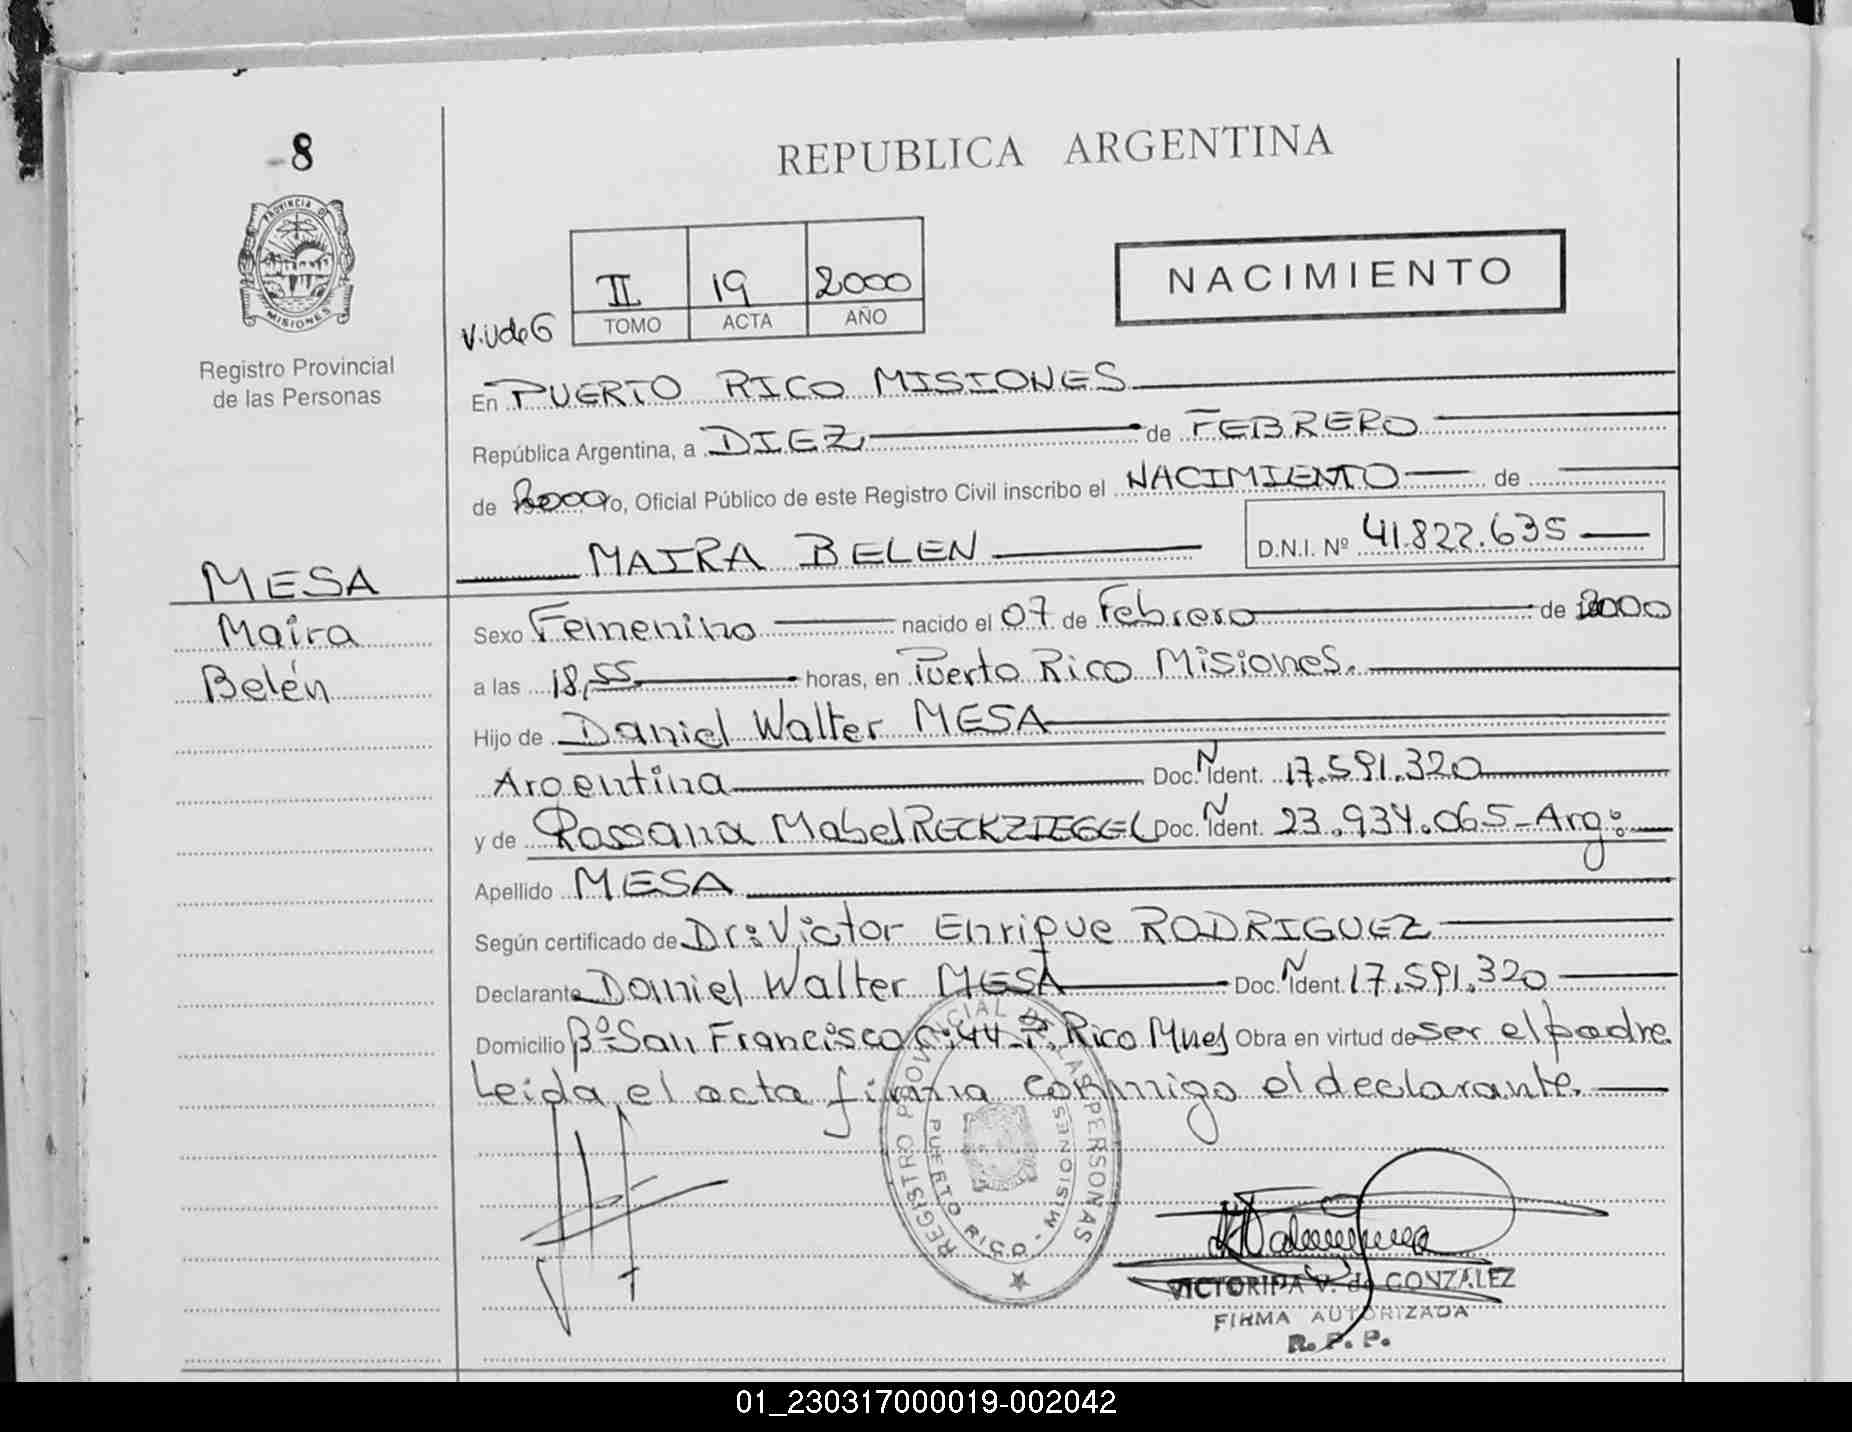 8
REPUBLICA ARGENTINA
PROVINCIA DE
MISIONES
Registro Provincial
de las Personas
II 19 2000
TOMO ACTA AÑO
V.VdeG
NACIMIENTO
En PUERTO RICO MISIONES
República Argentina, a DIEZ de FEBRERO
de 2000 yo, Oficial Público de este Registro Civil inscribo el NACIMIENTO de
MAIRA BELEN D.N.I. Nº 41.822.635
MESA
Maira
Belén
Sexo Femenino nacido el 07 de Febrero de 2000
a las 18,55 horas, en Puerto Rico Misiones.
Hijo de Daniel Walter MESA
Argentina Doc. N Ident. 17.591.320
y de Rossana Mabel RECKZIEGEL Doc. N Ident. 23.934.065-Arg:
Apellido MESA
Según certificado de Dr: Victor Enrique RODRIGUEZ
Declarante Daniel Walter MESA Doc. N Ident. 17.591.320
Domicilio Bº San Francisco C:44 P. Rico Mnes Obra en virtud de ser el padre.
Leida el acta firma conmigo el declarante.
REGISTRO PROVINCIAL DE LAS PERSONAS
PUERTO RICO - MISIONES
VICTORINA V. de GONZALEZ
FIRMA AUTORIZADA
R. P. P.
01_230317000019-002042